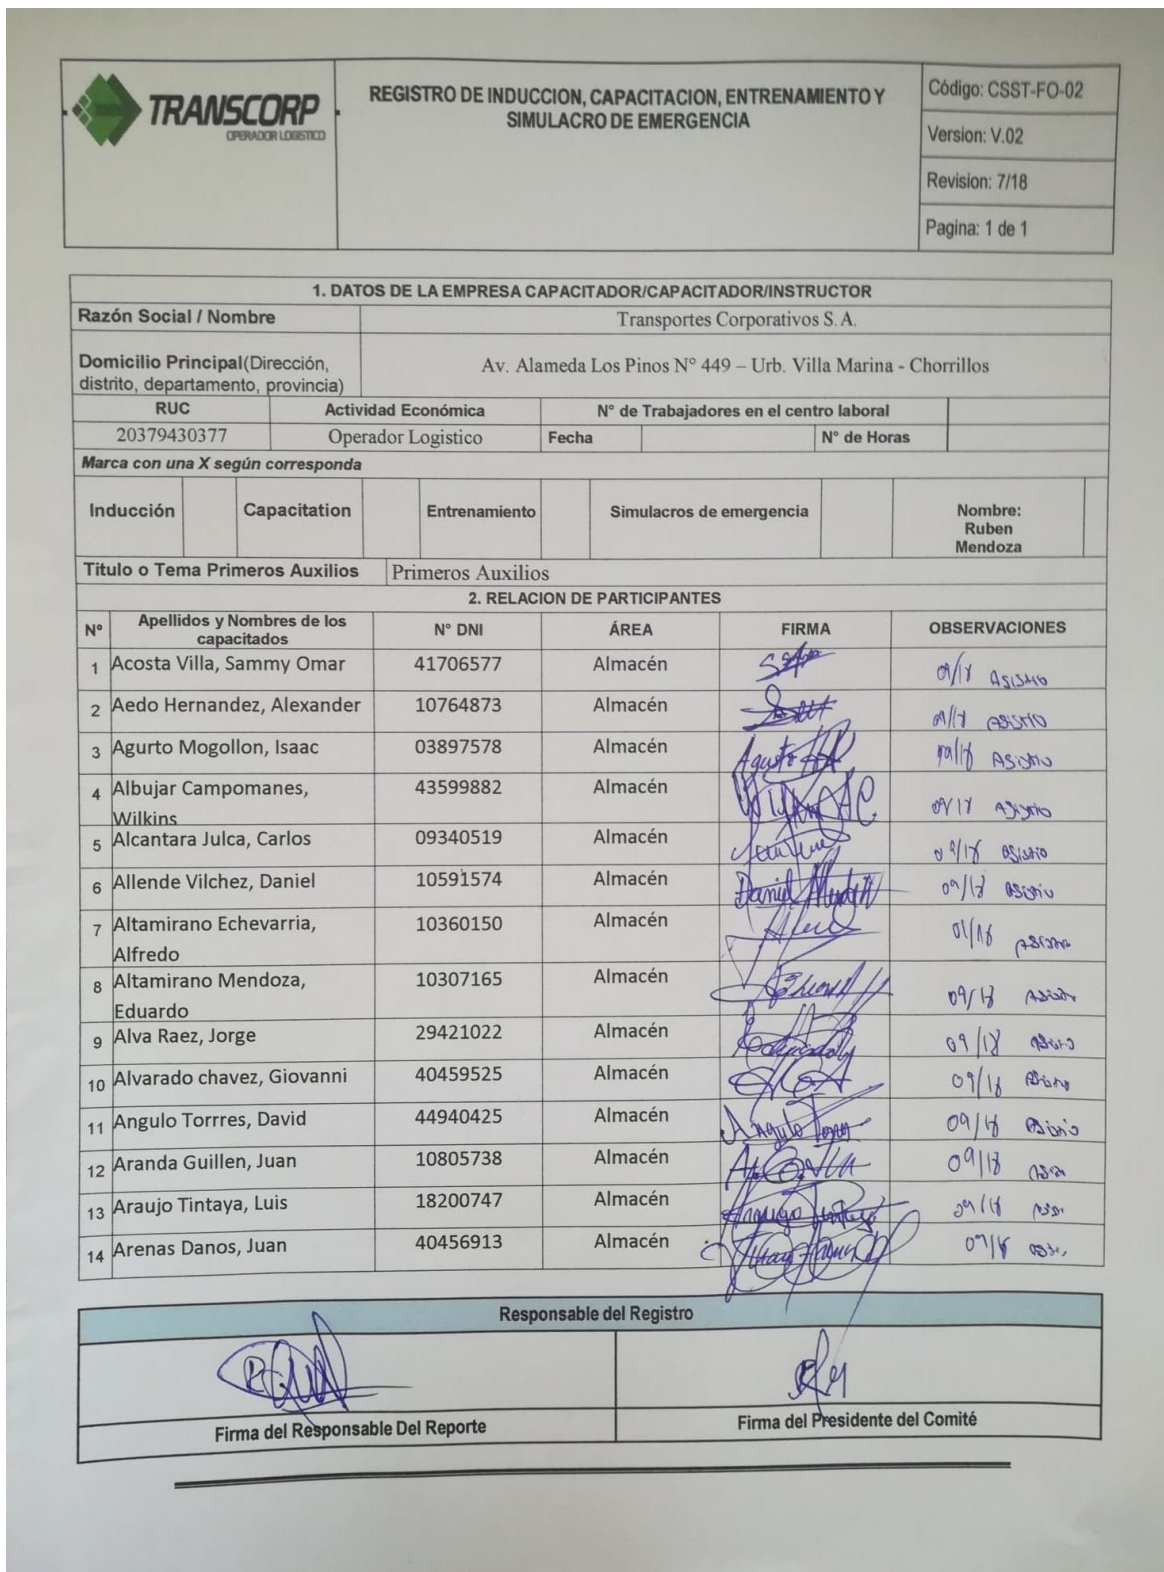 TRANSCORP
OPERADOR LOGISTICO
REGISTRO DE INDUCCION, CAPACITACION, ENTRENAMIENTO Y
SIMULACRO DE EMERGENCIA
Código: CSST-FO-02
Version: V.02
Revision: 7/18
Pagina: 1 de 1
1. DATOS DE LA EMPRESA CAPACITADOR/CAPACITADOR/INSTRUCTOR
Razón Social / Nombre Transportes Corporativos S.A.
Domicilio Principal(Dirección,
distrito, departamento, provincia) Av. Alameda Los Pinos N° 449 – Urb. Villa Marina - Chorrillos
RUC Actividad Económica N° de Trabajadores en el centro laboral
20379430377 Operador Logistico Fecha N° de Horas
Marca con una X según corresponda
Inducción Capacitation Entrenamiento Simulacros de emergencia Nombre:
Ruben
Mendoza
Titulo o Tema Primeros Auxilios Primeros Auxilios
2. RELACION DE PARTICIPANTES
N° Apellidos y Nombres de los
capacitados N° DNI ÁREA FIRMA OBSERVACIONES
1 Acosta Villa, Sammy Omar 41706577 Almacén 09/18 Asistio
2 Aedo Hernandez, Alexander 10764873 Almacén 09/18 Asistio
3 Agurto Mogollon, Isaac 03897578 Almacén 09/18 Asistio
4 Albujar Campomanes,
Wilkins 43599882 Almacén 09/18 Asistio
5 Alcantara Julca, Carlos 09340519 Almacén 09/18 Asistio
6 Allende Vilchez, Daniel 10591574 Almacén 09/18 Asistio
7 Altamirano Echevarria,
Alfredo 10360150 Almacén Asistio
8 Altamirano Mendoza,
Eduardo 10307165 Almacén 09/18 Asistio
9 Alva Raez, Jorge 29421022 Almacén 09/18 Asistio
10 Alvarado chavez, Giovanni 40459525 Almacén 09/18 Asistio
11 Angulo Torrres, David 44940425 Almacén 09/18 Asistio
12 Aranda Guillen, Juan 10805738 Almacén 09/18
13 Araujo Tintaya, Luis 18200747 Almacén 09/18
14 Arenas Danos, Juan 40456913 Almacén 09/18
Responsable del Registro
Firma del Responsable Del Reporte Firma del Presidente del Comité